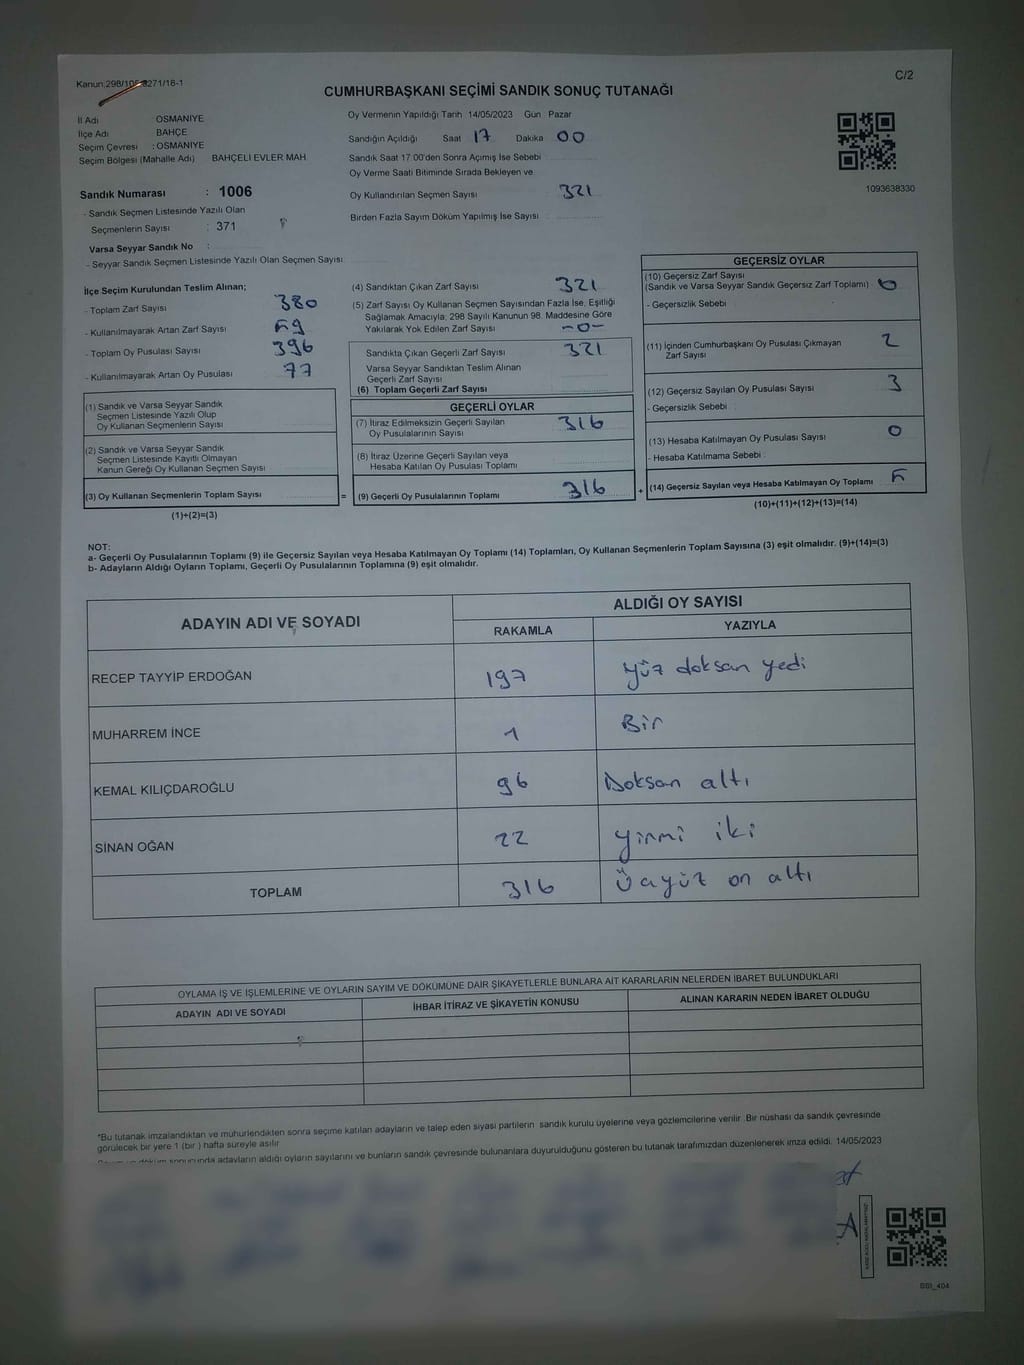 Kanun:298/105-8271/16-1
C/2
CUMHURBAŞKANI SEÇİMİ SANDIK SONUÇ TUTANAĞI
İl Adı : OSMANİYE
İlçe Adı : BAHÇE
Seçim Çevresi : OSMANİYE
Seçim Bölgesi (Mahalle Adı) BAHÇELİ EVLER MAH.
Sandık Numarası : 1006
- Sandık Seçmen Listesinde Yazılı Olan
Seçmenlerin Sayısı : 371
Varsa Seyyar Sandık No :
- Seyyar Sandık Seçmen Listesinde Yazılı Olan Seçmen Sayısı:
Oy Vermenin Yapıldığı Tarih 14/05/2023 Gün : Pazar
Sandığın Açıldığı Saat 17 Dakika 00
Sandık Saat 17.00'den Sonra Açımış İse Sebebi
Oy Verme Saati Bitiminde Sırada Bekleyen ve
Oy Kullandırılan Seçmen Sayısı : 321
Birden Fazla Sayım Döküm Yapılmış İse Sayısı :
1093638330
İlçe Seçim Kurulundan Teslim Alınan;
- Toplam Zarf Sayısı : 380
- Kullanılmayarak Artan Zarf Sayısı : 59
- Toplam Oy Pusulası Sayısı : 396
- Kullanılmayarak Artan Oy Pusulası : 77
(1) Sandık ve Varsa Seyyar Sandık
Seçmen Listesinde Yazılı Olup
Oy Kullanan Seçmenlerin Sayısı
(2) Sandık ve Varsa Seyyar Sandık
Seçmen Listesinde Kayıtlı Olmayan
Kanun Gereği Oy Kullanan Seçmen Sayısı
(3) Oy Kullanan Seçmenlerin Toplam Sayısı
(1)+(2)=(3)
=
(4) Sandıktan Çıkan Zarf Sayısı : 321
(5) Zarf Sayısı Oy Kullanan Seçmen Sayısından Fazla İse, Eşitliği
Sağlamak Amacıyla; 298 Sayılı Kanunun 98. Maddesine Göre
Yakılarak Yok Edilen Zarf Sayısı : -0-
Sandıkta Çıkan Geçerli Zarf Sayısı : 321
Varsa Seyyar Sandıktan Teslim Alınan
Geçerli Zarf Sayısı
(6) Toplam Geçerli Zarf Sayısı
GEÇERLİ OYLAR
(7) İtiraz Edilmeksizin Geçerli Sayılan : 316
Oy Pusulalarının Sayısı
(8) İtiraz Üzerine Geçerli Sayılan veya
Hesaba Katılan Oy Pusulası Toplamı
(9) Geçerli Oy Pusulalarının Toplamı : 316
+
GEÇERSİZ OYLAR
(10) Geçersiz Zarf Sayısı
(Sandık ve Varsa Seyyar Sandık Geçersiz Zarf Toplamı) : 0
- Geçersizlik Sebebi :
(11) İçinden Cumhurbaşkanı Oy Pusulası Çıkmayan : 2
Zarf Sayısı
(12) Geçersiz Sayılan Oy Pusulası Sayısı : 3
- Geçersizlik Sebebi :
(13) Hesaba Katılmayan Oy Pusulası Sayısı : 0
- Hesaba Katılmama Sebebi :
(14) Geçersiz Sayılan veya Hesaba Katılmayan Oy Toplamı : 5
(10)+(11)+(12)+(13)=(14)
NOT:
a- Geçerli Oy Pusulalarının Toplamı (9) ile Geçersiz Sayılan veya Hesaba Katılmayan Oy Toplamı (14) Toplamları, Oy Kullanan Seçmenlerin Toplam Sayısına (3) eşit olmalıdır. (9)+(14)=(3)
b- Adayların Aldığı Oyların Toplamı, Geçerli Oy Pusulalarının Toplamına (9) eşit olmalıdır.
ADAYIN ADI VE SOYADI
ALDIĞI OY SAYISI
RAKAMLA YAZIYLA
RECEP TAYYİP ERDOĞAN 197 Yüz doksan yedi
MUHARREM İNCE 1 Bir
KEMAL KILIÇDAROĞLU 96 Doksan altı
SİNAN OĞAN 22 Yirmi iki
TOPLAM 316 Üçyüz on altı
OYLAMA İŞ VE İŞLEMLERİNE VE OYLARIN SAYIM VE DÖKÜMÜNE DAİR ŞİKAYETLERLE BUNLARA AİT KARARLARIN NELERDEN İBARET BULUNDUKLARI
ADAYIN ADI VE SOYADI İHBAR İTİRAZ VE ŞİKAYETİN KONUSU ALINAN KARARIN NEDEN İBARET OLDUĞU
*Bu tutanak imzalandıktan ve mühürlendikten sonra seçime katılan adayların ve talep eden siyasi partilerin sandık kurulu üyelerine veya gözlemcilerine verilir. Bir nüshası da sandık çevresinde
görülecek bir yere 1 (bir ) hafta süreyle asılır.
sonucunda adayların aldığı oyların sayılarını ve bunların sandık çevresinde bulunanlara duyurulduğunu gösteren bu tutanak tarafımızdan düzenlenerek imza edildi. 14/05/2023
SSI_404